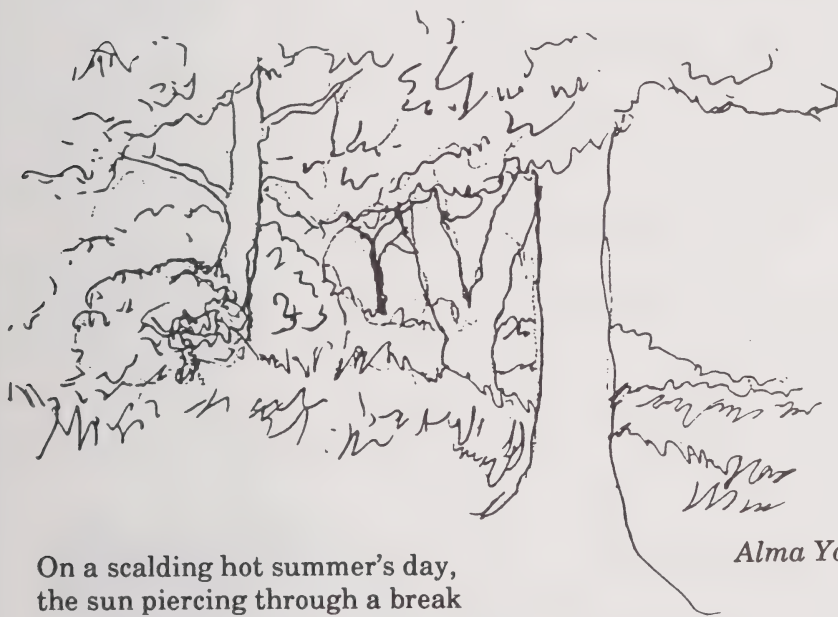 Alma
On a scalding hot summer's day,
the sun piercing through a break